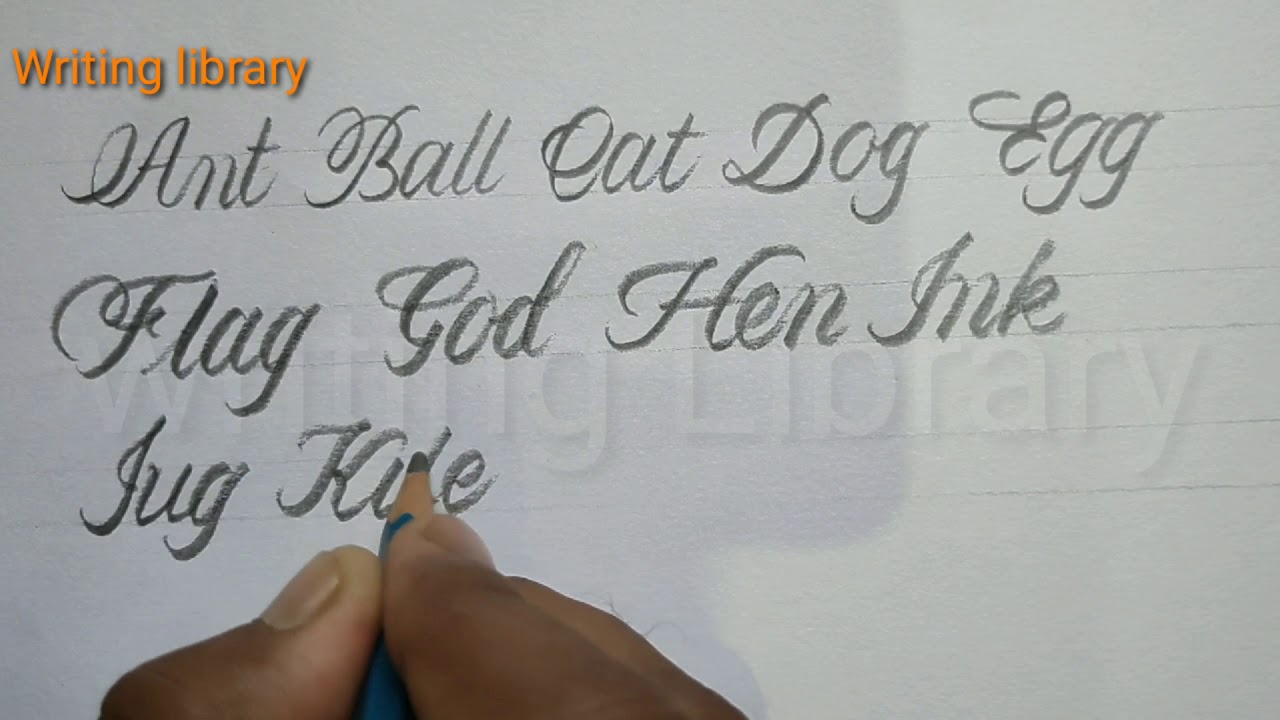 Writing library
Ant Ball Cat Dog Egg
Flag God Hen Ink
Writing Library
Jug Kite